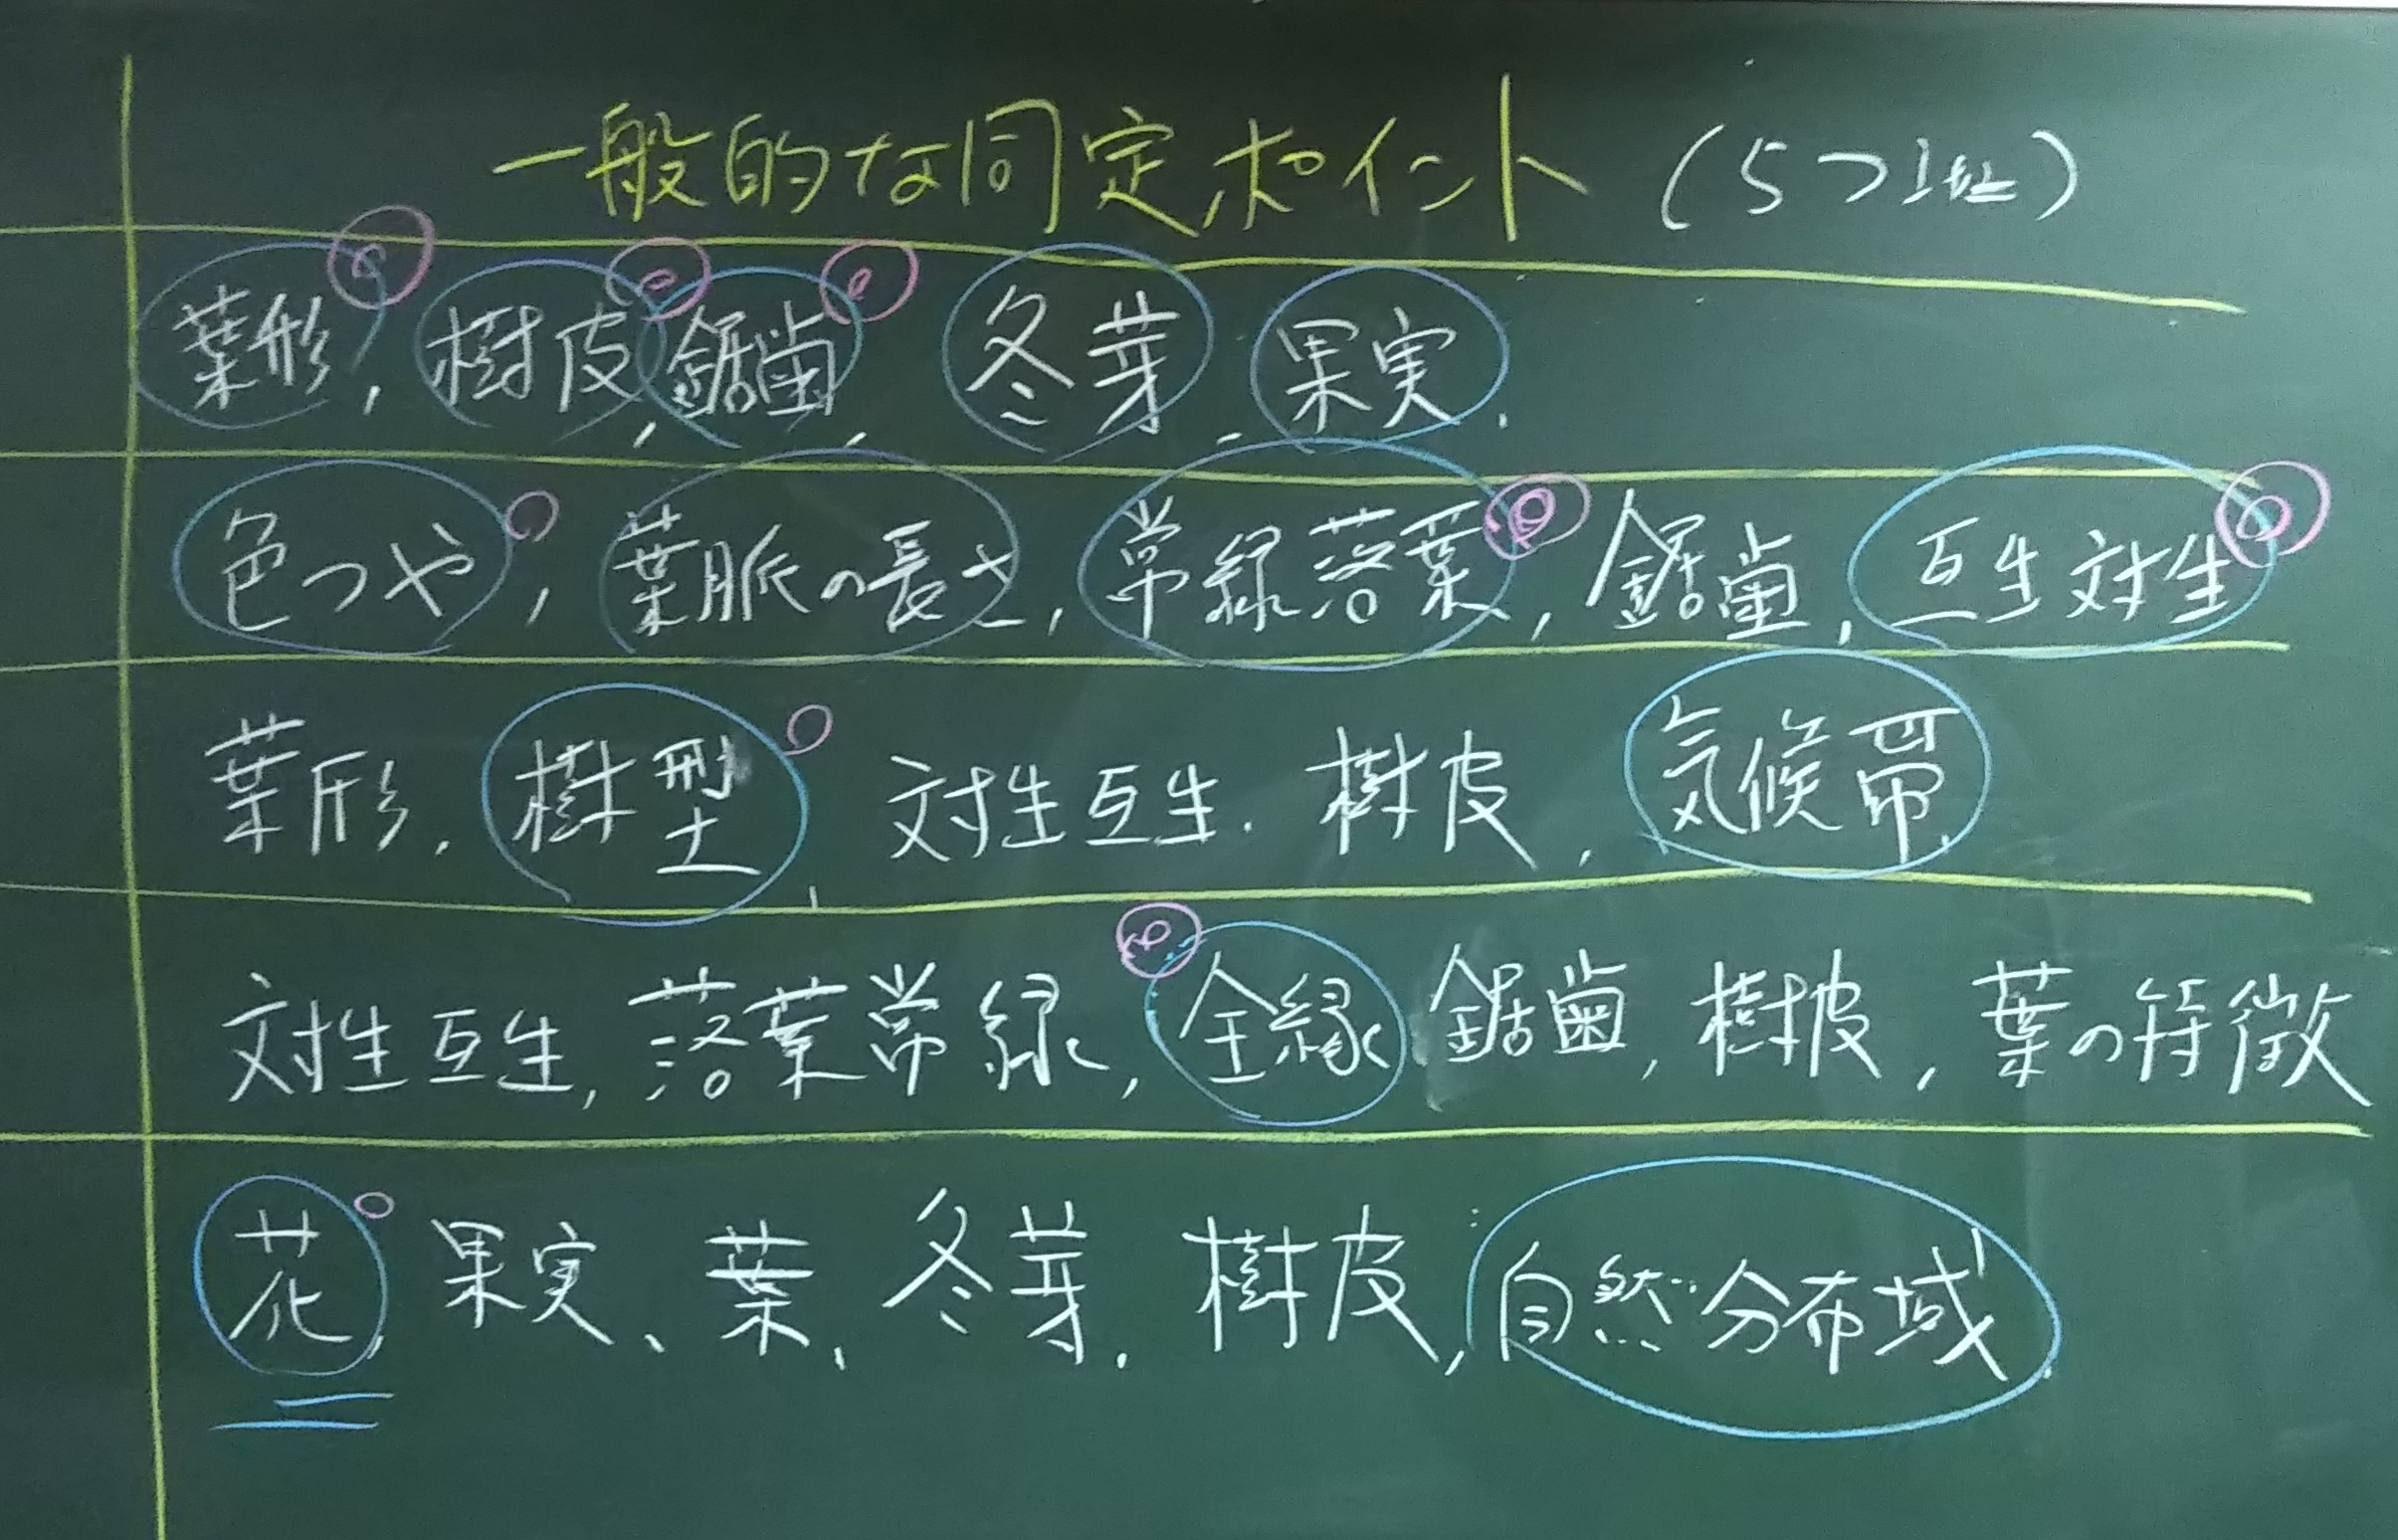 一般的な同定ポイント (5つ以上)
葉形, 樹皮, 鋸歯, 冬芽, 果実,
色つや, 葉脈の長さ, 常緑落葉, 鋸歯, 互生対生
葉形, 樹型, 対生互生, 樹皮, 気候帯,
対生互生, 落葉常緑, 全縁 鋸歯, 樹皮, 葉の特徴
花, 果実、葉, 冬芽, 樹皮, 自然分布域,